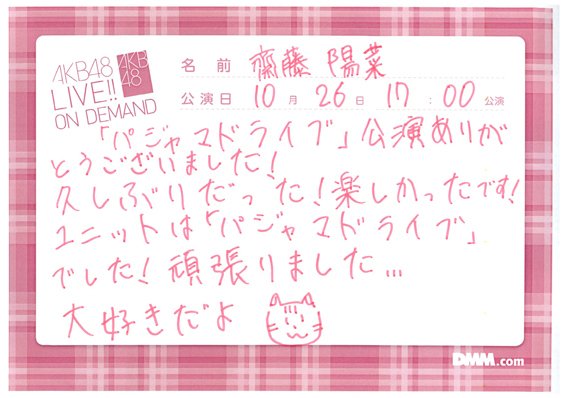 AKB48
LIVE!!
ON DEMAND
AKB
48
名前 齋藤 陽菜
公演日 10月26日 17:00公演
「パジャマドライブ」公演ありが
とうございました!
久しぶりだった!楽しかったです!
ユニットは「パジャマドライブ」
でした!頑張りました...
大好きだよ
DMM.com